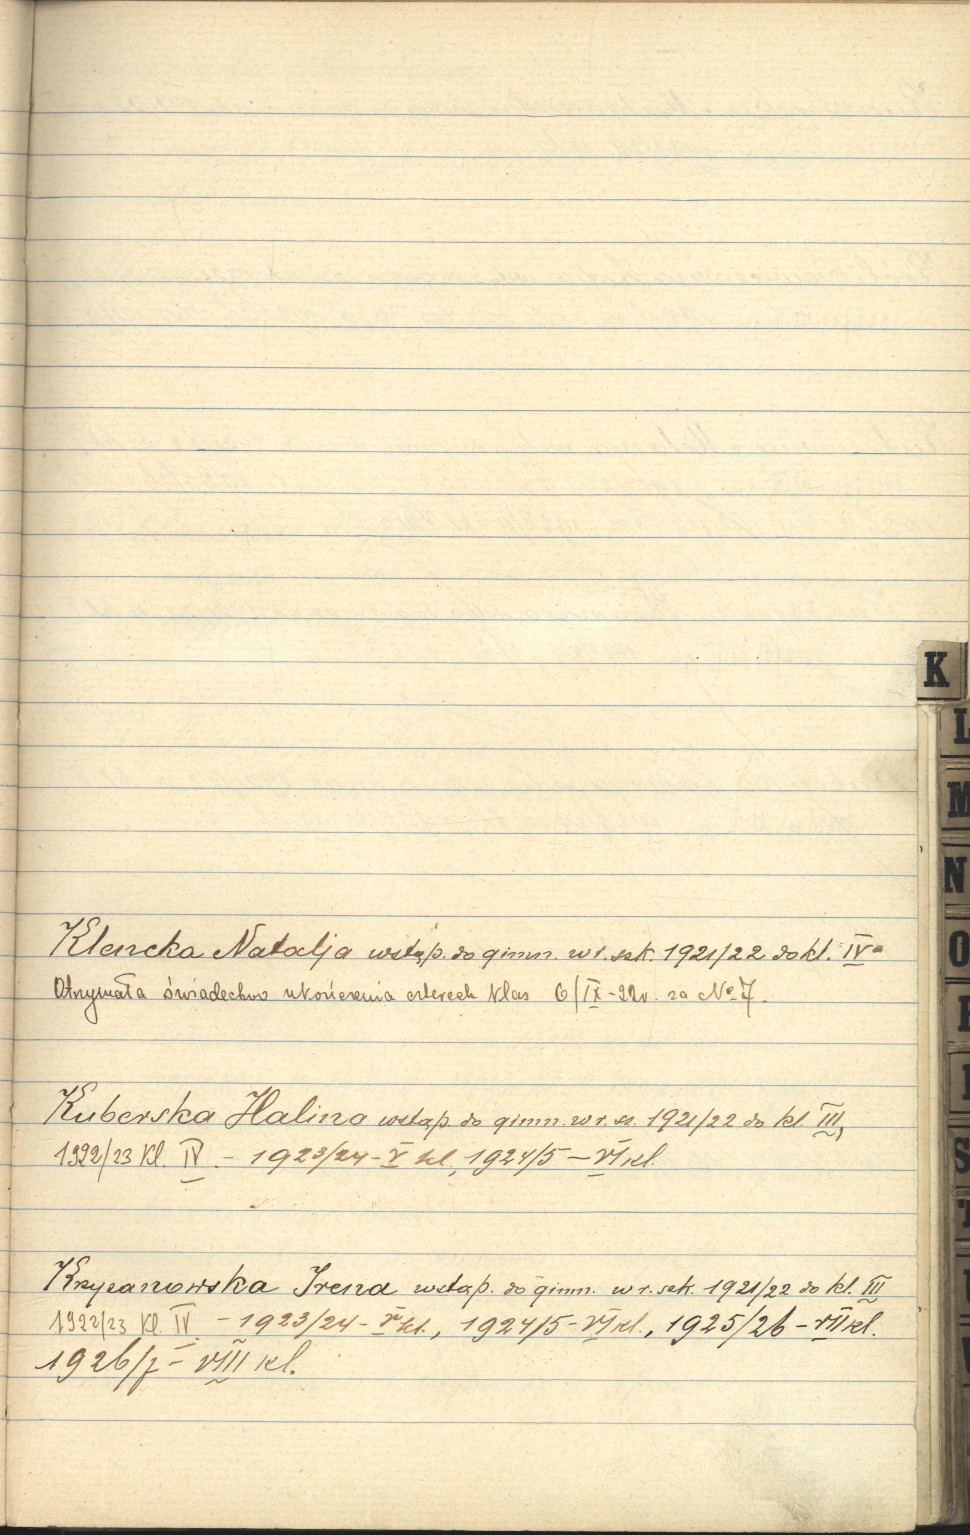 K
L
M
N
O
P
R
S
T
Klencka Natalja wstąp. do gimn. w r. szk. 1921/22 do kl. IVa
Otrzymała świadectwo ukończenia czterech klas 6/IX-22r. za No 7.
Kuberska Halina wstąp. do gimn. w r. sz. 1921/22 do kl. III,
1922/23 Kl. IV - 1923/24 - V kl., 1924/5 - VI kl.
Krzyżanowska Irena wstąp. do gimn. w r. szk. 1921/22 do kl. III
1922/23 Kl. IV - 1923/24 - V kl., 1924/5 - VI kl., 1925/26 - VII kl.
1926/7 - VIII kl.